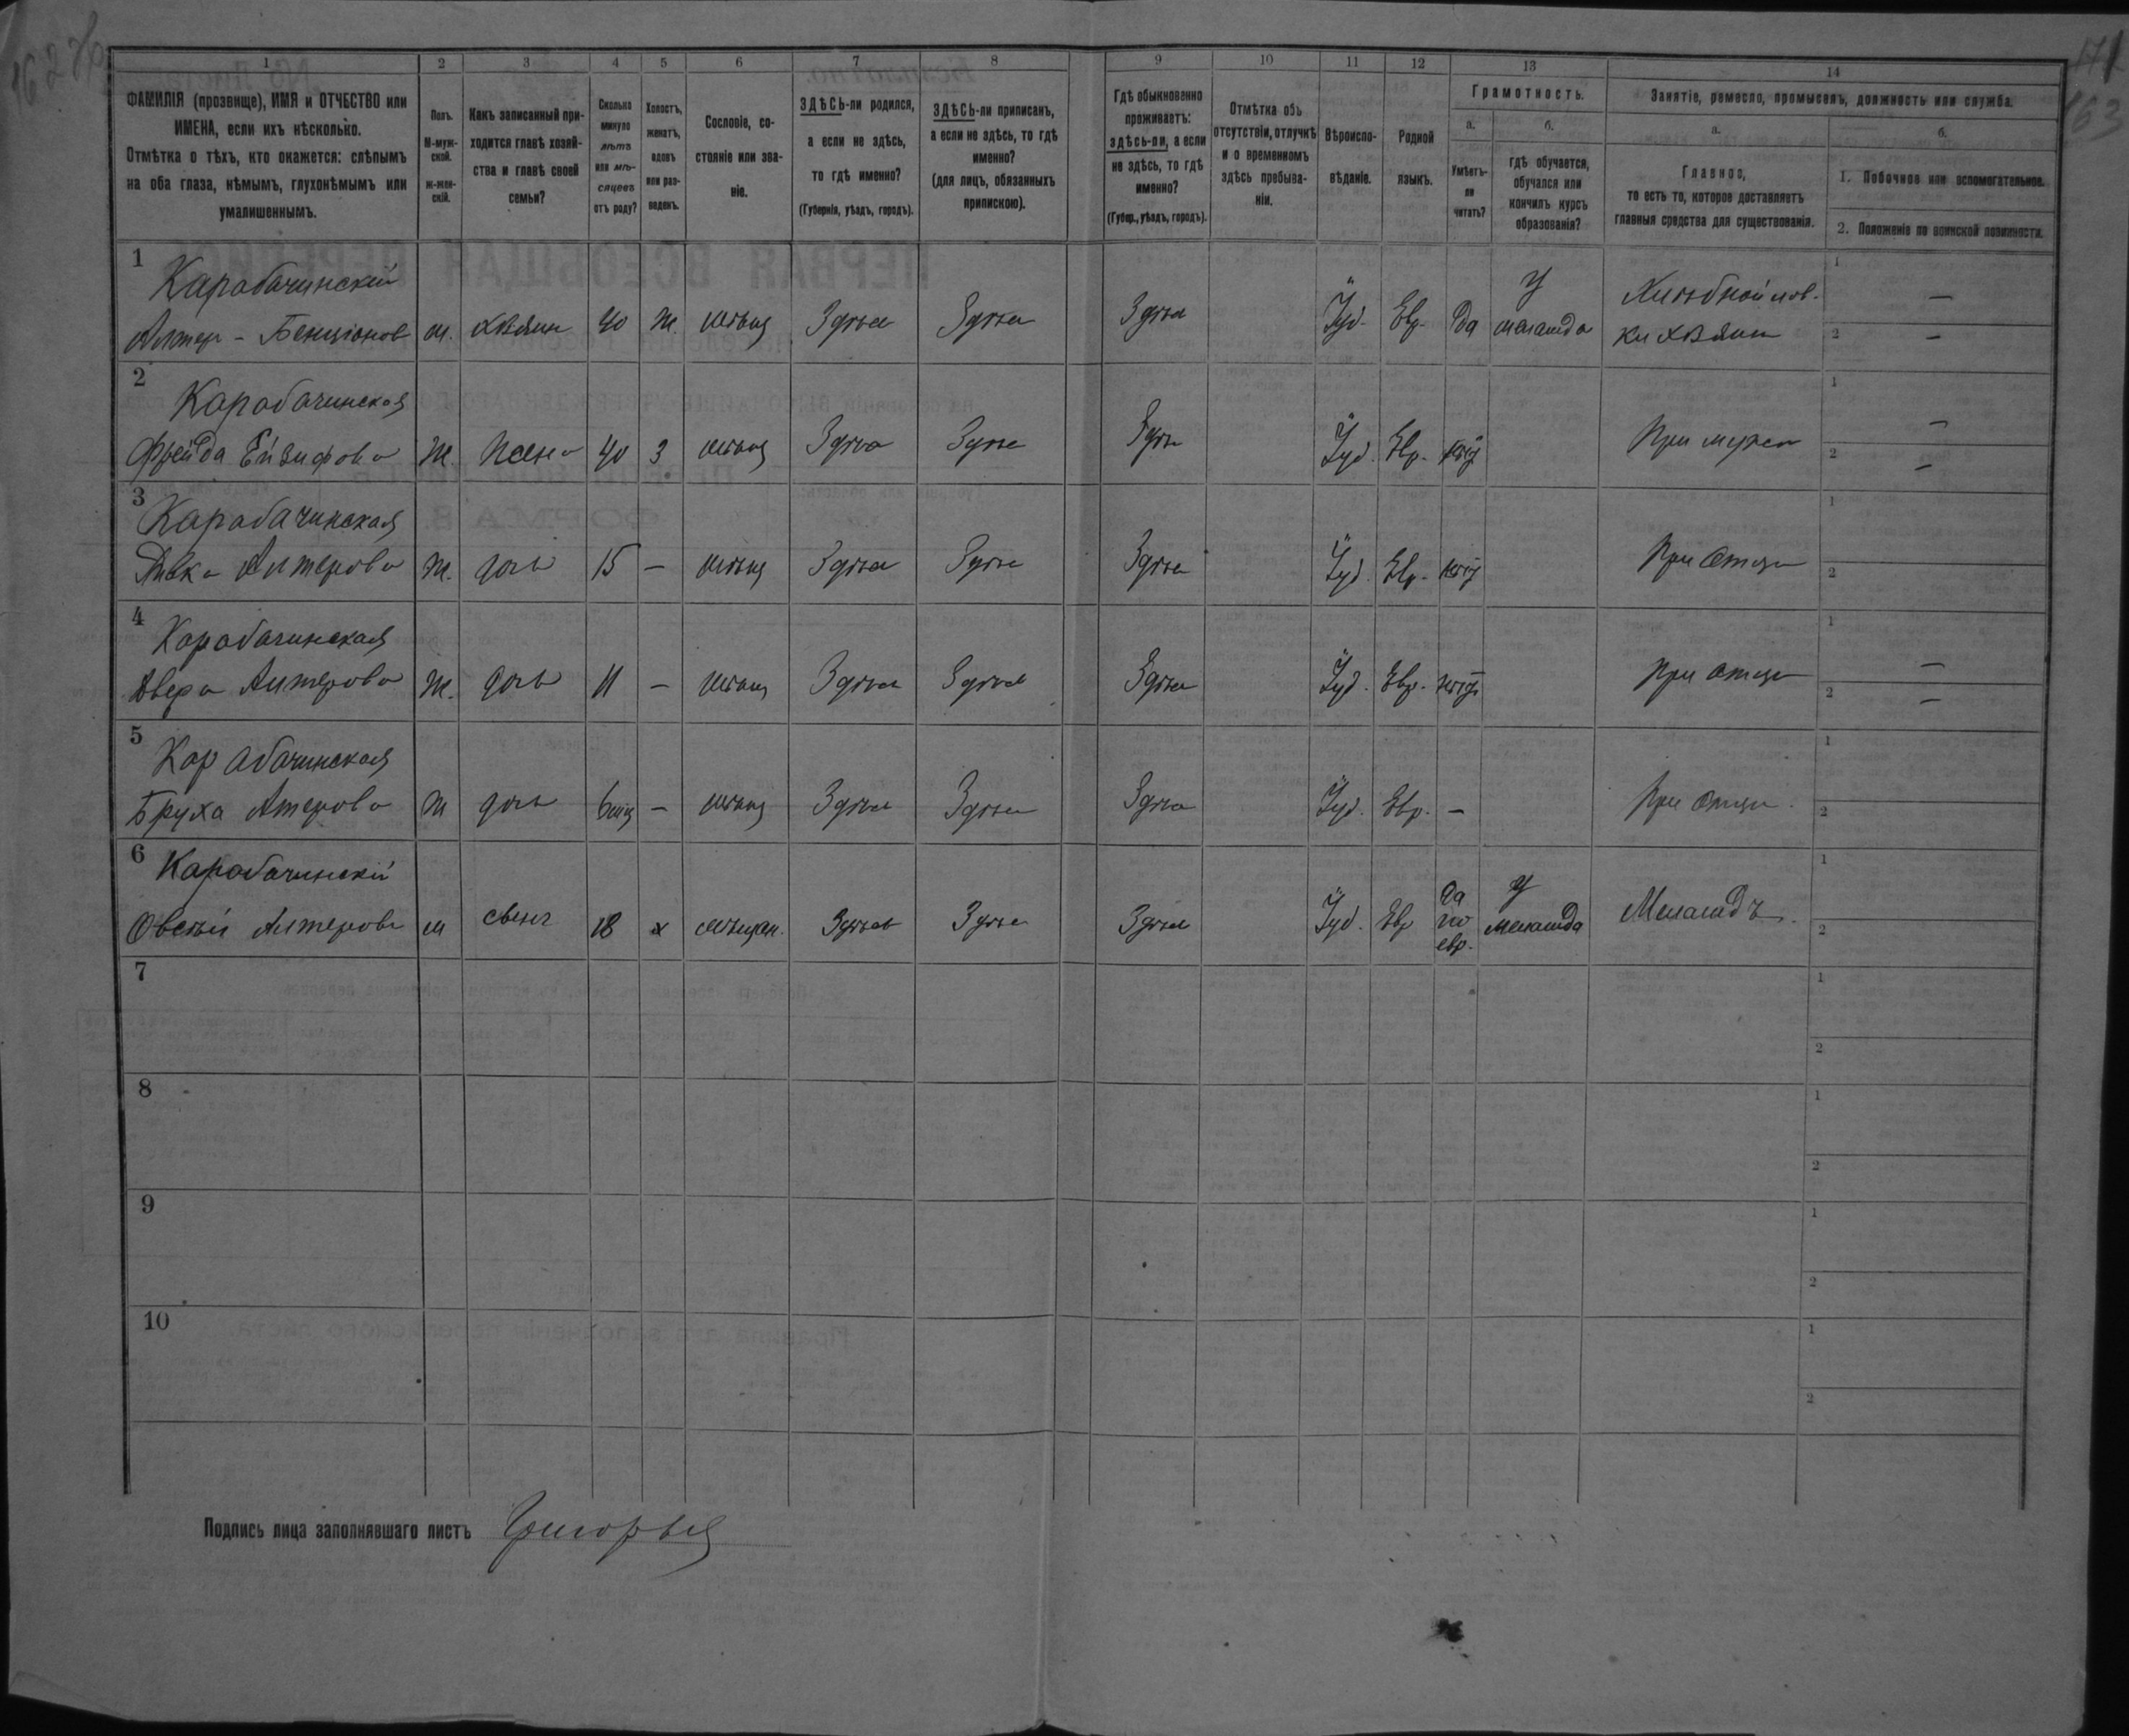 162 об
171
163
1
2
3
4
5
6
7
8
9
10
11
12
13
14
ФАМИЛІЯ (прозвище), ИМЯ и ОТЧЕСТВО или
ИМЕНА, если ихъ нѣсколько.
Отмѣтка о тѣхъ, кто окажется: слѣпымъ
на оба глаза, нѣмымъ, глухонѣмымъ или
умалишеннымъ.
Полъ.
М-муж-
ской.
ж-жен-
скій.
Какъ записанный при-
ходится главѣ хозяй-
ства и главѣ своей
семьи?
Сколько
минуло
лѣтъ
или мѣ-
сяцевъ
отъ роду?
Холостъ,
женатъ,
вдовъ
или раз-
веденъ.
Сословіе, со-
стояніе или зва-
ніе.
ЗДѢСЬ-ли родился,
а если не здѣсь,
то гдѣ именно?
(Губернія, уѣздъ, городъ).
ЗДѢСЬ-ли приписанъ,
а если не здѣсь, то гдѣ
именно?
(для лицъ, обязанныхъ
припискою).
Гдѣ обыкновенно
проживаетъ:
здѣсь-ли, а если
не здѣсь, то гдѣ
именно?
(Губер., уѣздъ, городъ).
Отмѣтка объ
отсутствіи, отлучкѣ
и о временномъ
здѣсь пребыва-
ніи.
Вѣроиспо-
вѣданіе.
Родной
языкъ.
Грамотность.
а.
Умѣетъ-
ли
читать?
б.
гдѣ обучается,
обучался или
кончилъ курсъ
образованія?
Занятіе, ремесло, промыселъ, должность или служба.
а.
Главное,
то есть то, которое доставляетъ
главныя средства для существованія.
б.
1. Побочное или вспомогательное.
2. Положеніе по воинской повинности.
1
Карабачинскій
Алтер - Бенціонов м. хозяин 40 ж. мѣщ Здѣсь Здѣсь Здѣсь Іуд. Евр. Да у меламда Хлѣбной лав-
ки хозяин
1 —
2 —
2
Карабачинская
Фрейда Ейзифова Ж. Жена 40 З мѣщ Здѣсь Здѣсь Здѣсь Іуд. Евр. нѣт При мужѣ
1 —
2 —
3
Карабачинская
Алтерова Ж. дочь 15 — мѣщ Здѣсь Здѣсь Здѣсь Іуд. Евр. нѣт При отцѣ
1
2
4
Карабачинская
Двера Алтерова Ж. дочь 11 — мѣщ Здѣсь Здѣсь Здѣсь Іуд. Евр. нѣт при отцѣ
1 —
2 —
5
Карабачинская
Бруха Алтерова Ж дочь 6 мц — мѣщ Здѣсь Здѣсь Здѣсь Іуд. Евр. — при отцѣ.
1
2
6
Карабачинскій
Овсѣй Алтеров м сынъ 18 х мѣщан. Здѣсь Здѣсь Здѣсь Іуд. Евр Да по евр. у меламда Меламдъ.
1
2
7
1
2
8
1
2
9
1
2
10
1
2
Подпись лица заполнявшаго листъ